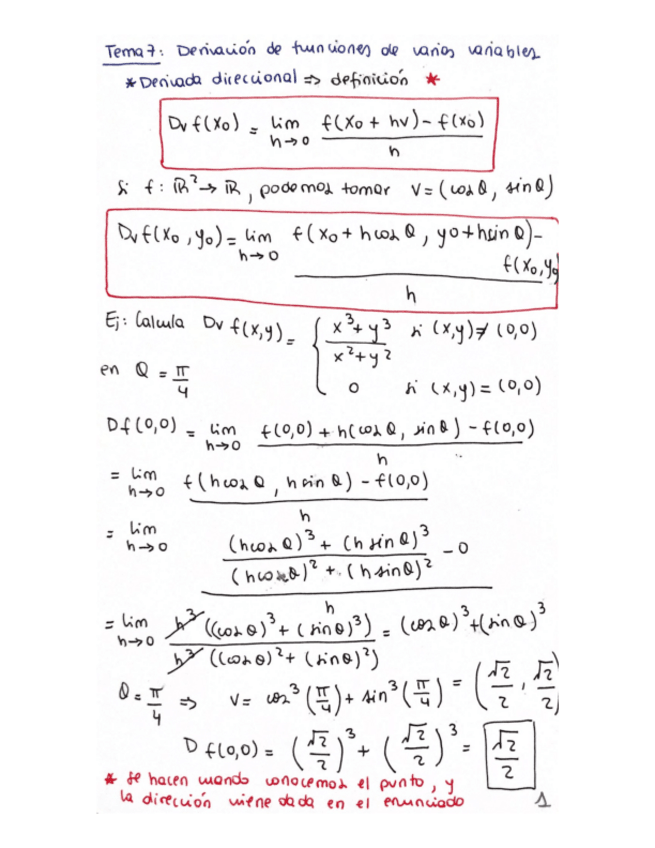 Tema 7: Derivación de funciones de varias variables
* Derivada direccional => definición *
Dv f(x₀) = lim h→0 (f(x₀ + hv) - f(x₀)) / h
Si f: ℝ² → ℝ, podemos tomar v = (cos θ, sin θ)
Dv f(x₀, y₀) = lim h→0 (f(x₀ + h cos θ, y₀ + h sin θ) - f(x₀, y₀)) / h
Ej: Calcula Dv f(x,y) = { (x³ + y³) / (x² + y²) si (x,y) ≠ (0,0)
en θ = π/4 0 si (x,y) = (0,0)
Df(0,0) = lim h→0 (f(0,0) + h(cos θ, sin θ) - f(0,0)) / h
= lim h→0 (f(h cos θ, h sin θ) - f(0,0)) / h
= lim h→0 (((h cos θ)³ + (h sin θ)³) / ((h cos θ)² + (h sin θ)²) - 0) / h
= lim h→0 h³((cos θ)³ + (sin θ)³) / h³((cos θ)² + (sin θ)²) = (cos θ)³ + (sin θ)³
θ = π/4 => v = cos³(π/4) + sin³(π/4) = (√2/2, √2/2)
D f(0,0) = (√2/2)³ + (√2/2)³ = √2/2
* Se hacen cuando conocemos el punto, y
la dirección viene dada en el enunciado
1